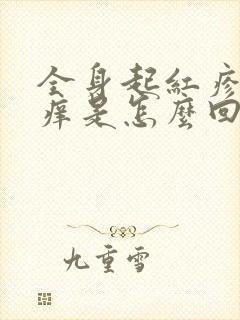 全身起紅疹
痒是怎麼回
九重雪